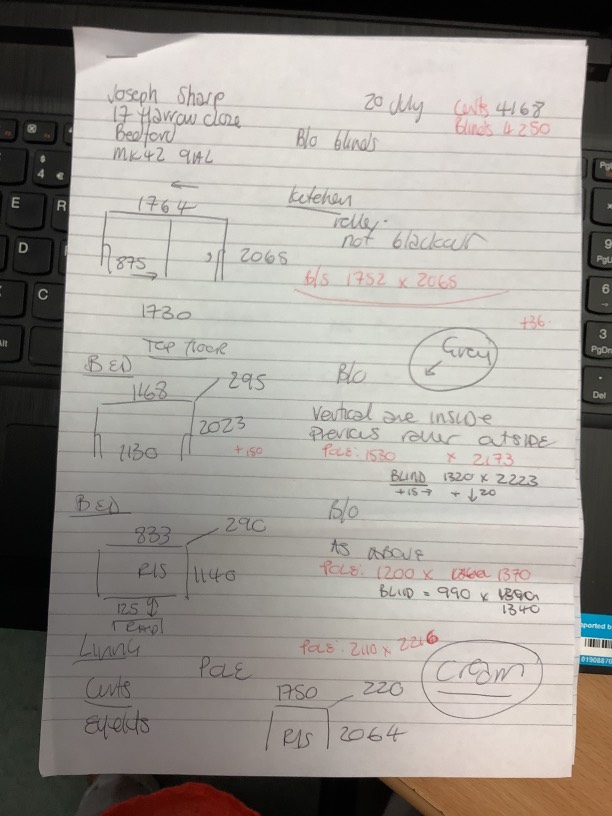 Joseph Sharp
17 Harrow close
Bedford
MK42 9AL
20 July
Curts 4168
Blinds 4250
B/o blinds
1764
875
2065
1730
Kitchen
roller
not blackout
b/s 1752 x 2065
+36
Top floor
BED
B/o
Grey
1168
295
2023
+150
1130
Vertical are inside
Previous roller outside
Pole: 1530 x 2173
BLIND 1320 x 2223
+15→ + ↓20
BED
B/o
833
290
R/S
1140
125
As above
Pole: 1200 x 1370
BLIND = 990 x
1340
Living
Pole
Pole: 2110 x 2216
Cream
Curts
Eyelets
1750
220
R/S
2064
E
R
D
C
4
€
$
Alt
9
PgU
6
3
PgDn
Del
ported b